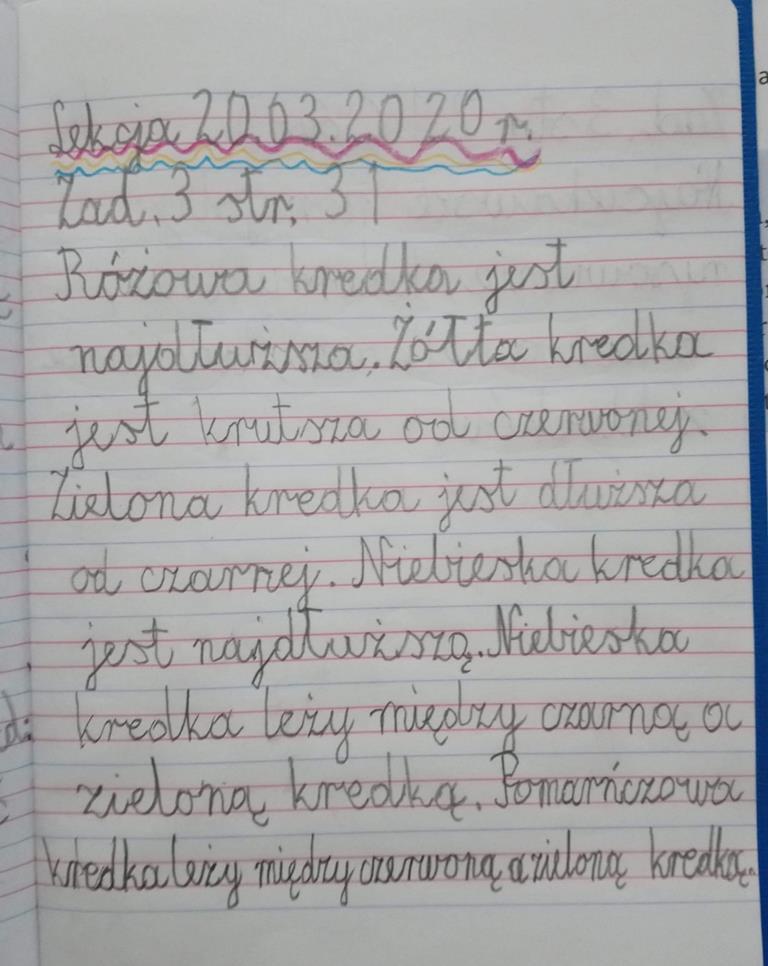 Lekcja 20.03.2020 r.
Zad. 3 str. 31
Różowa kredka jest
najdłuższa. Żółta kredka
jest krutsza od czerwonej.
Zielona kredka jest dłuższa
od czarnej. Niebieska kredka
jest najdłuższą. Niebieska
kredka leży między czarną a
zieloną kredką. Pomarńczowa
kredka leży między czerwoną a zieloną kredką.